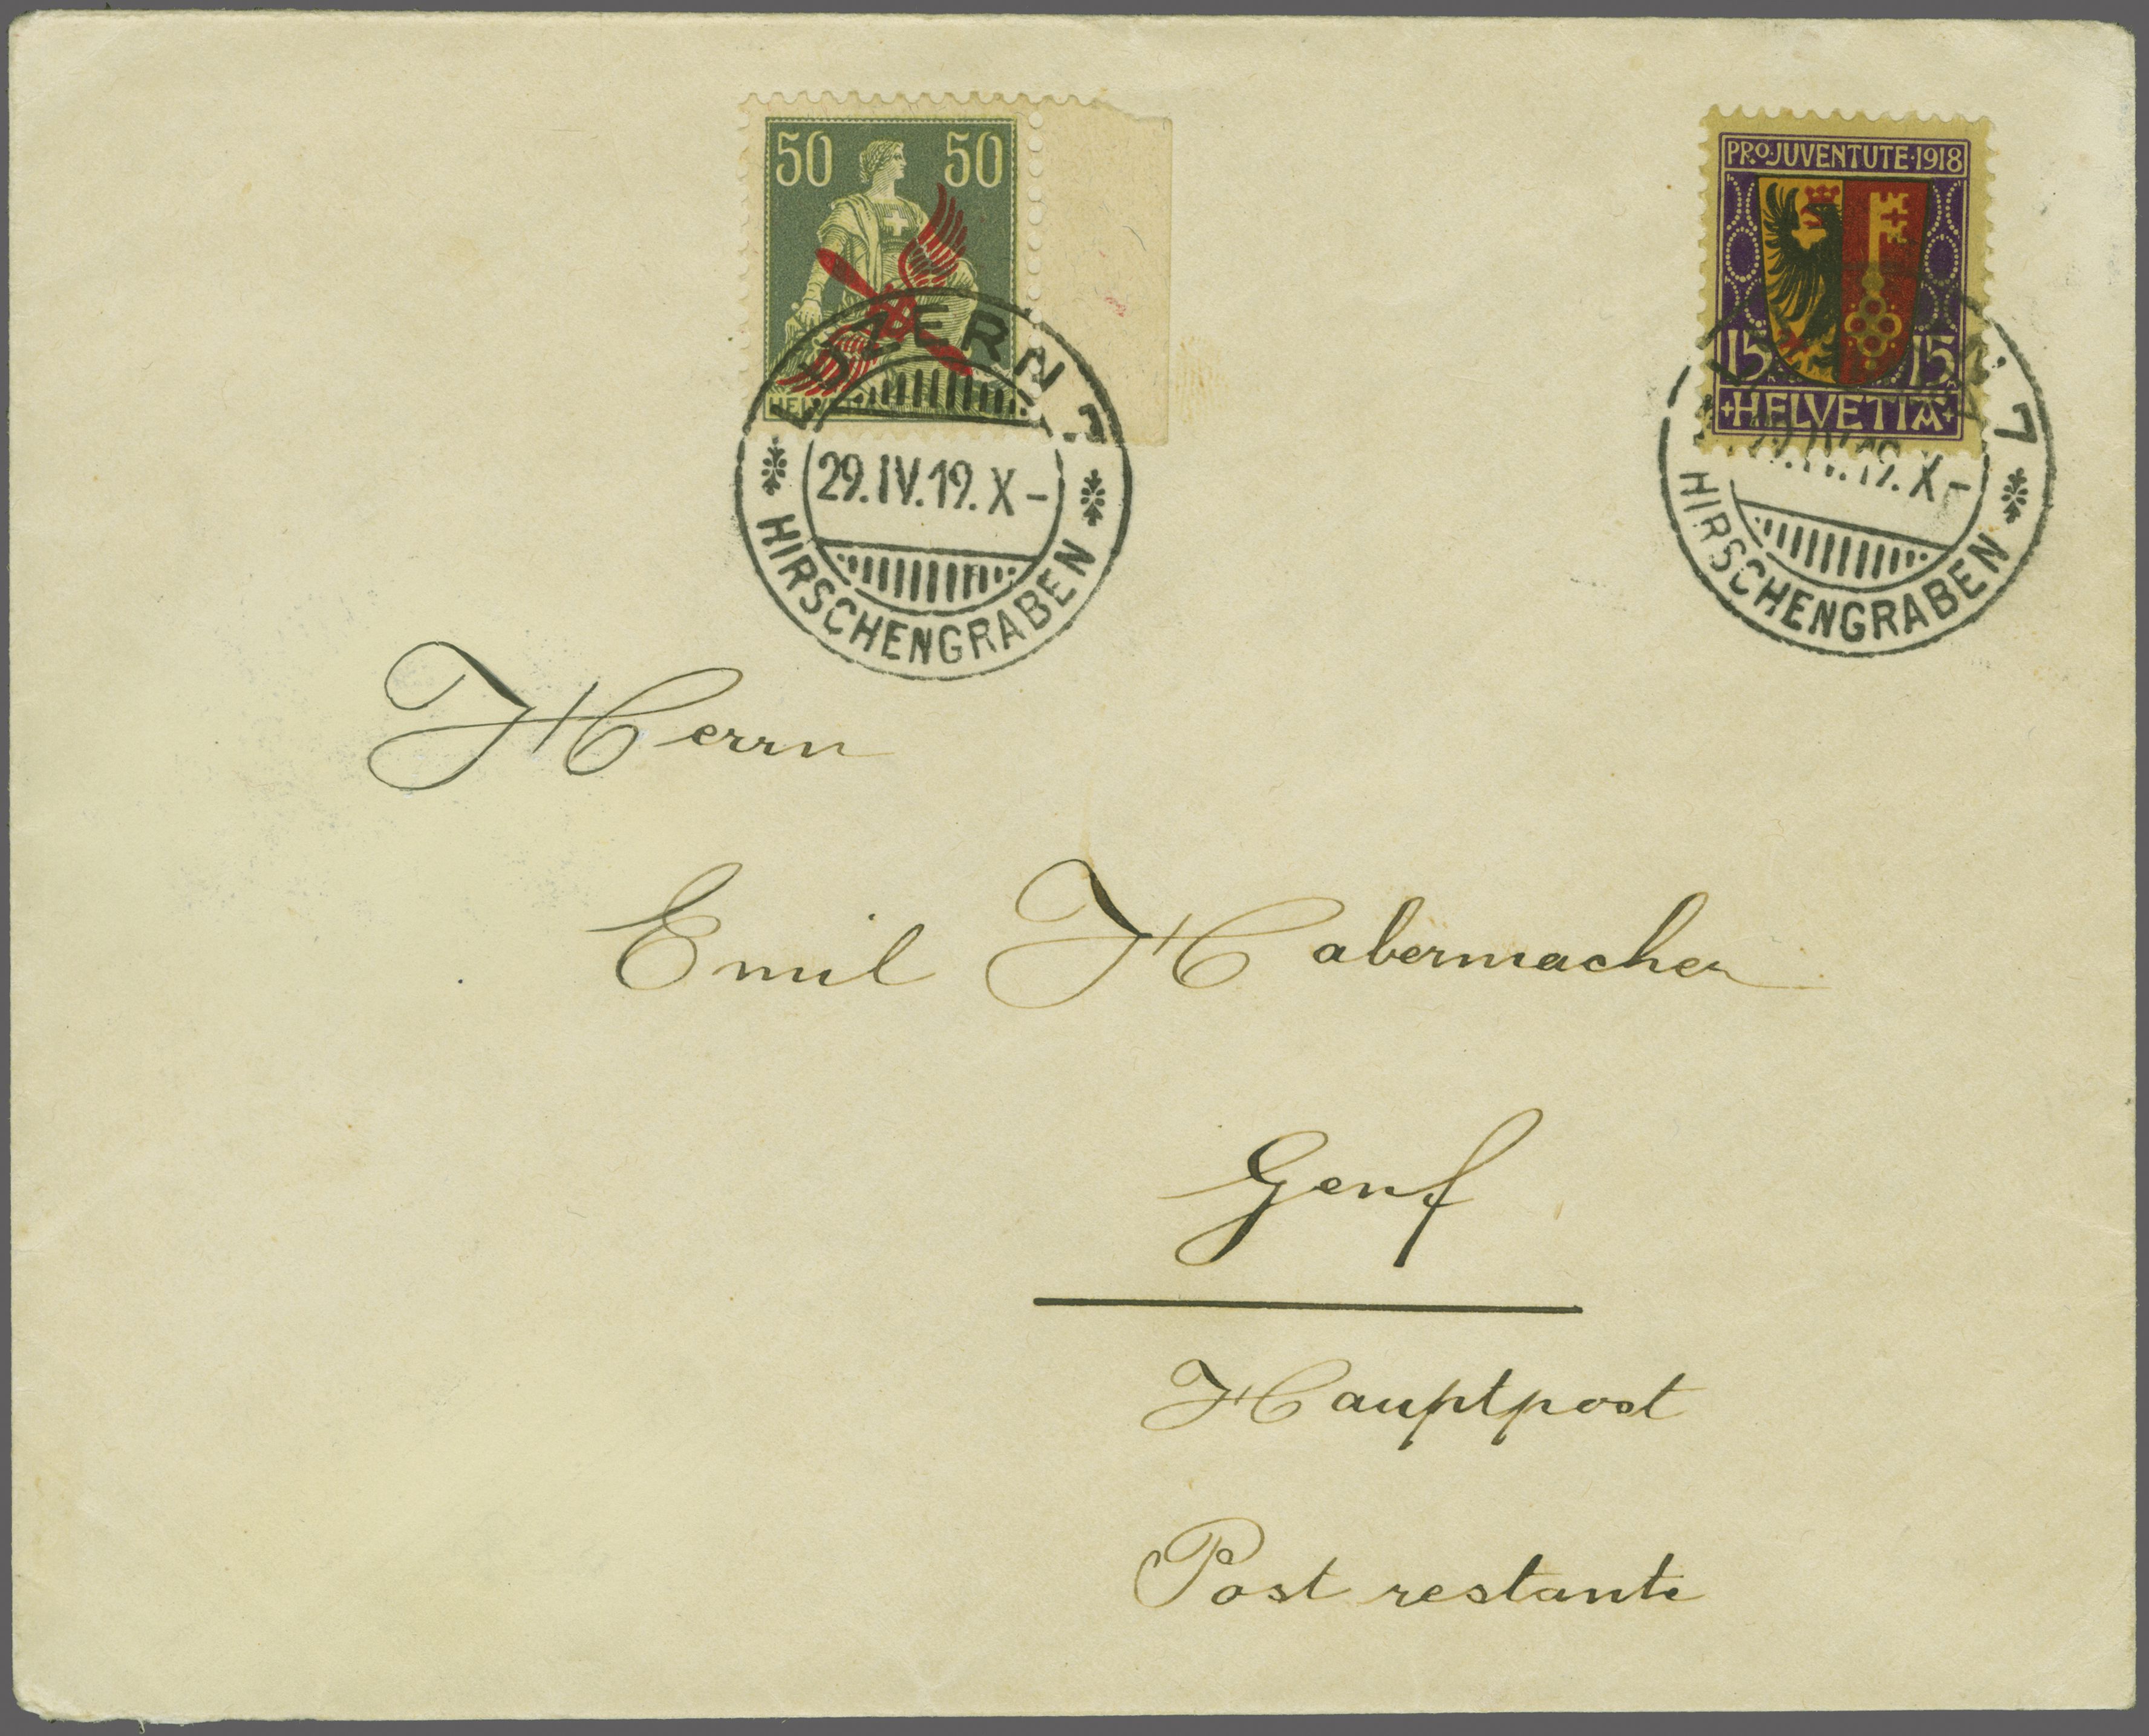 50 50
HELVETIA
LUZERN 7
29.IV.19.X-
HIRSCHENGRABEN
PRO JUVENTUTE·1918
15 15
+HELVETIA+
7
19.X-
HIRSCHENGRABEN
Herrn
Emil Habermacher
Genf
Hauptpost
Post restante